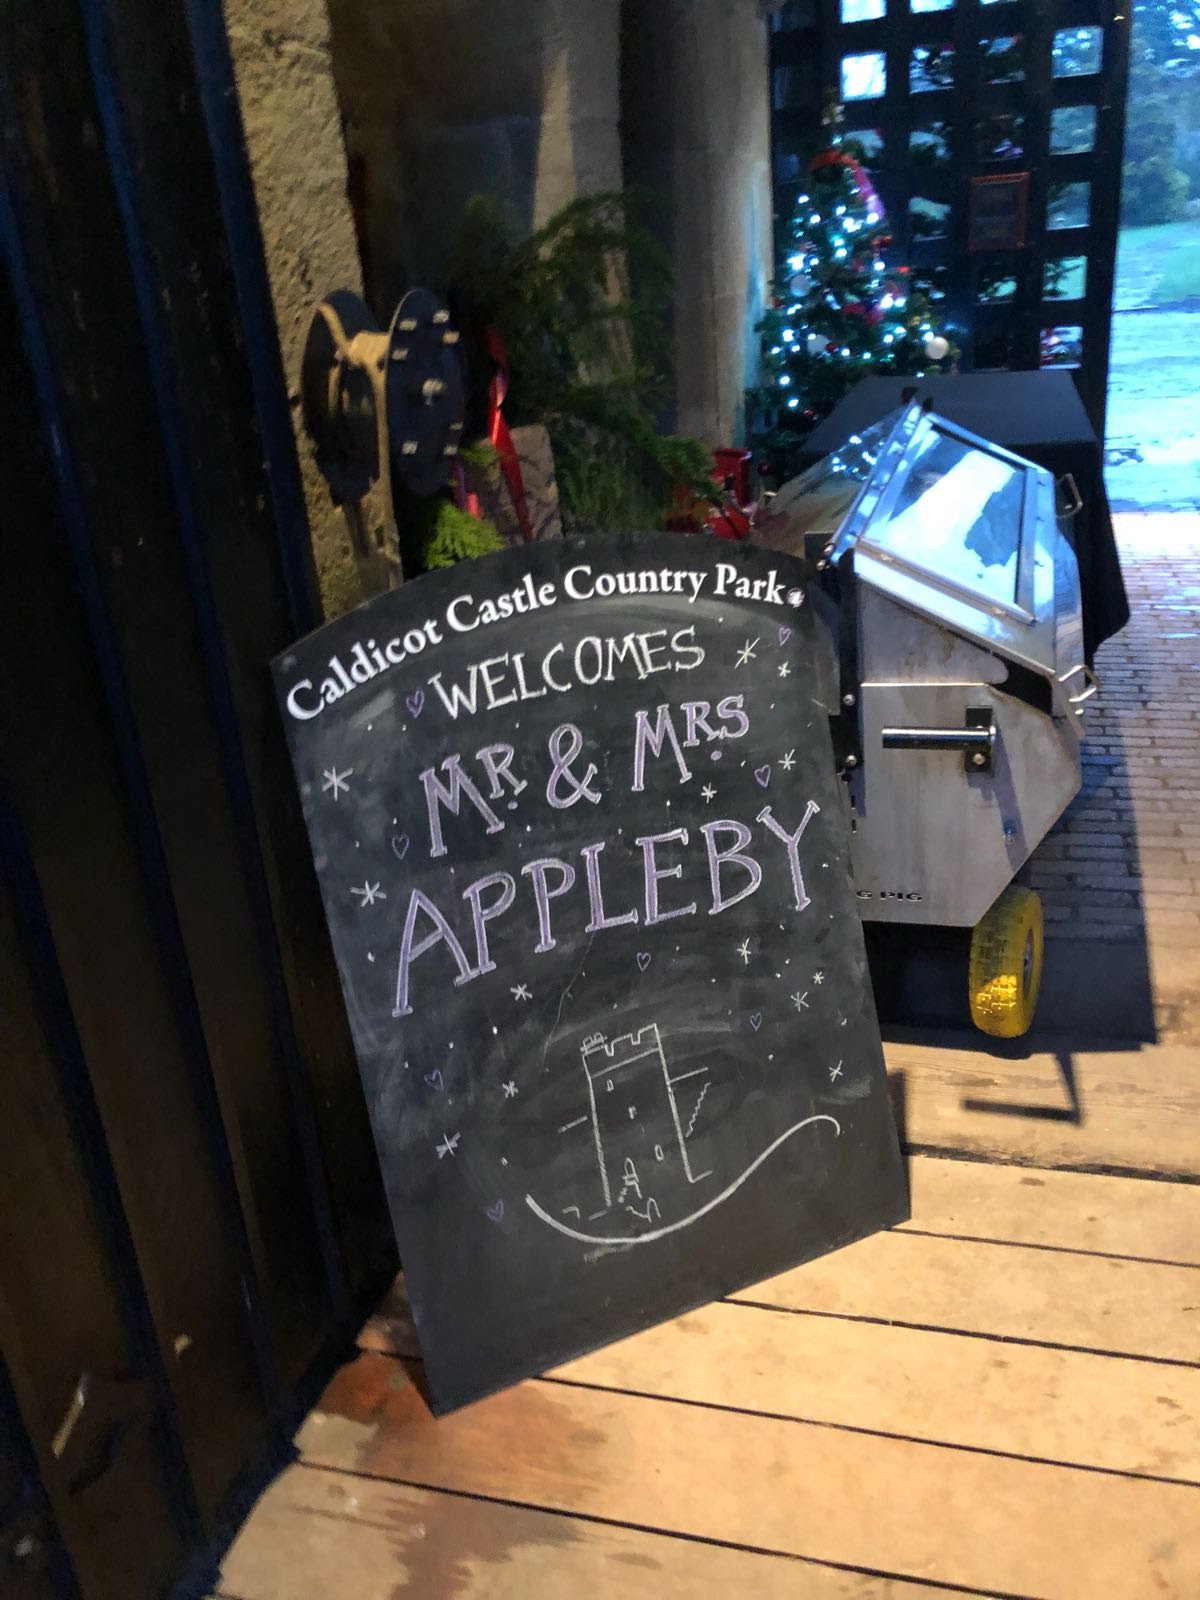 Caldicot Castle Country Park
WELCOMES
MR & MRS
APPLEBY
G PIG